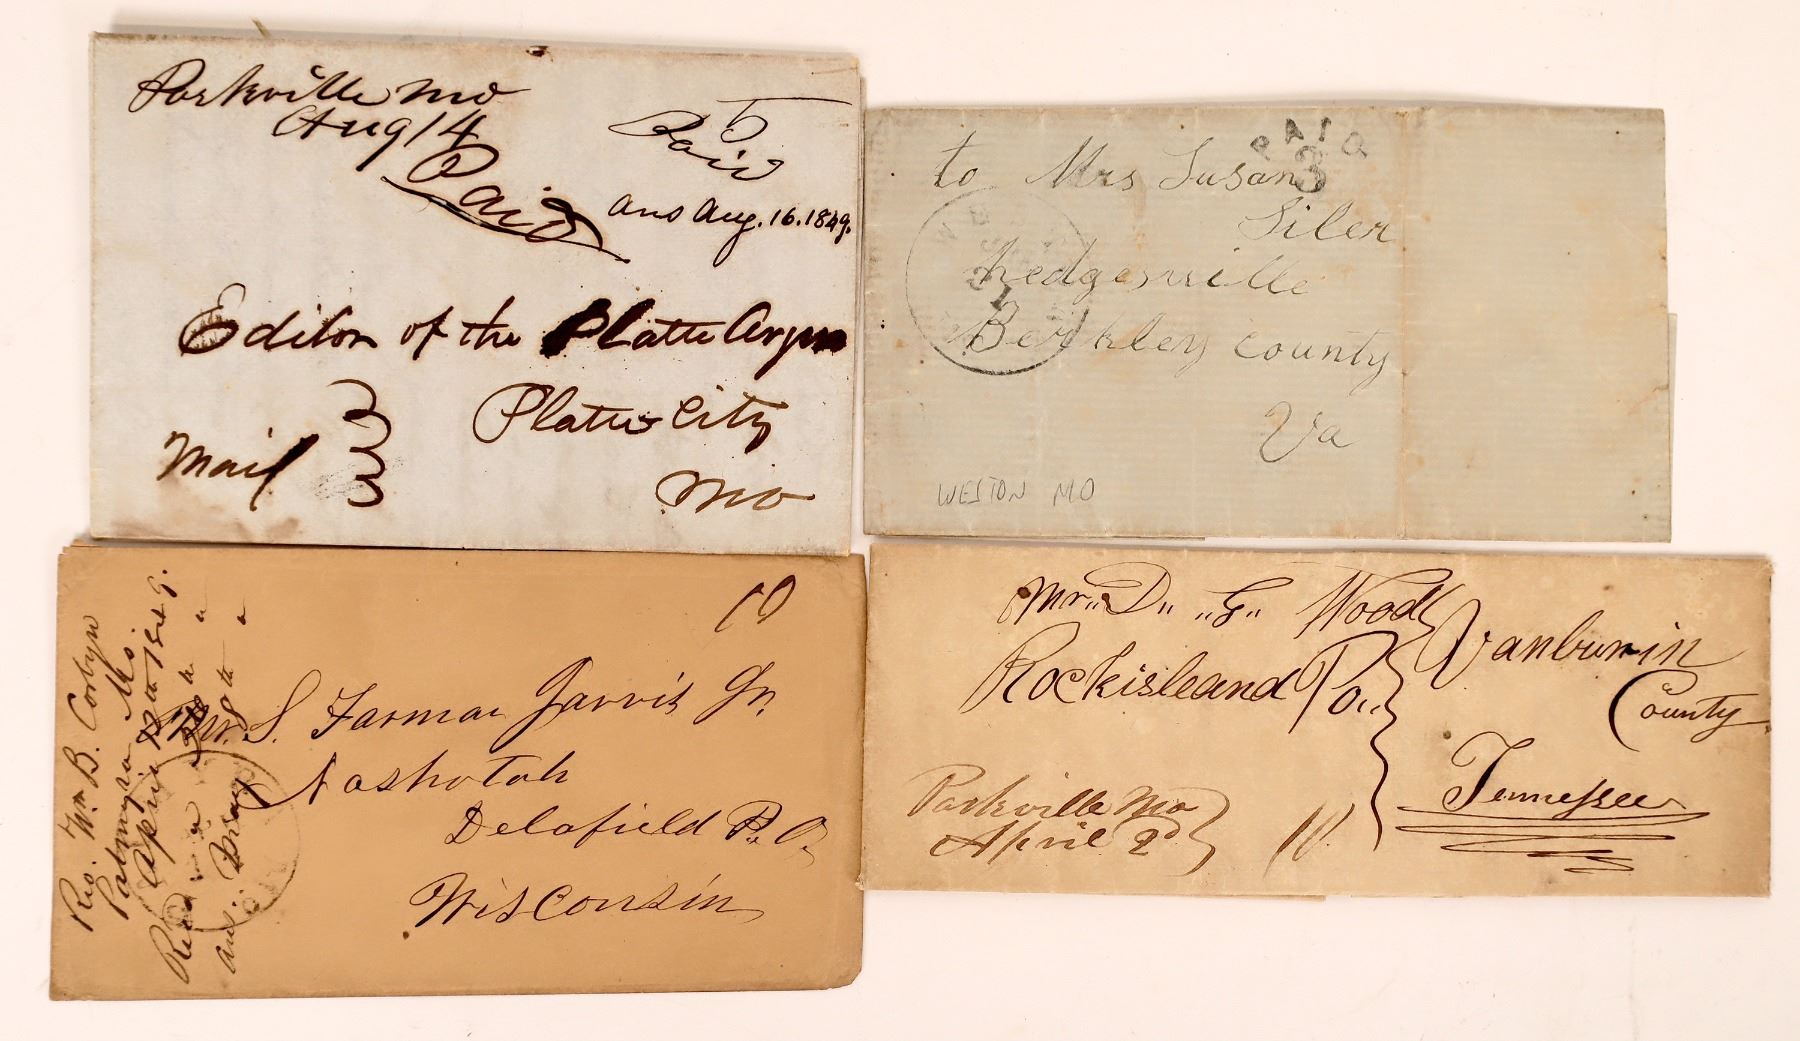 Parkville Mo
Aug 14
Paid
5
Paid
ans Aug. 16. 1849.
Editor of the Platte Argus
Platte City
Mo
Mail
PAID
3
to Mrs Susan
Siler
hedgesville
Berkley county
Va
WESTON MO
10
Mr. S. Farmar Jarvis Jr.
Nashotah
Delafield P. O.
Wisconsin
Rev. Wm. B. Corbyn
Palmyra Mo.
April
Recd
ans.
Mr. D. G. Wood
Rockisleand Po.
Vanburin
County
Tennessee
Parkville Mo
April 2d
10